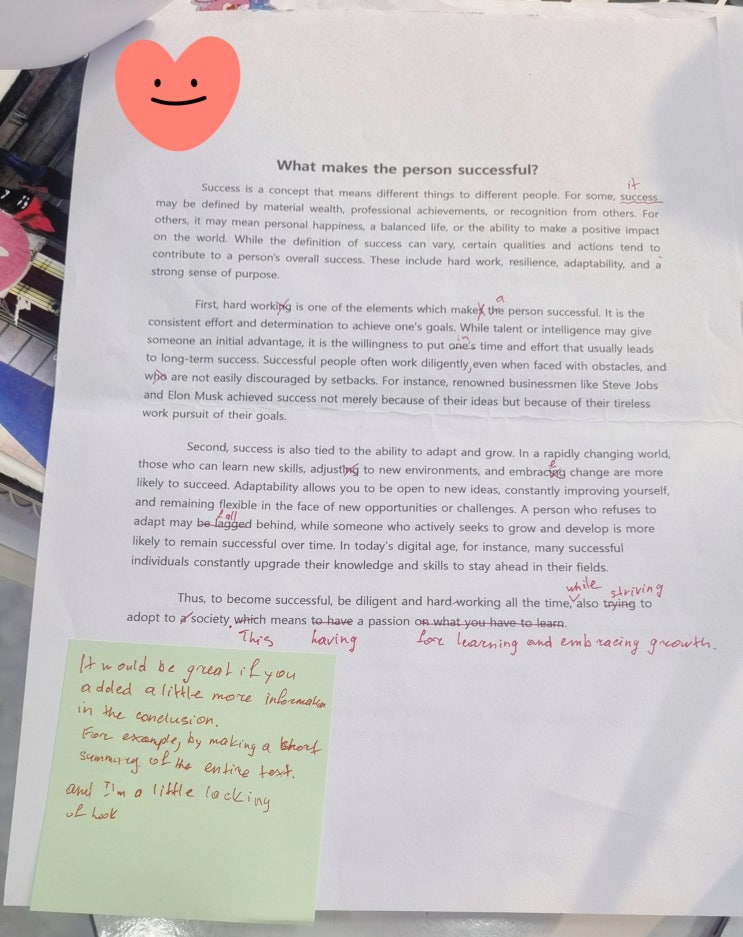 What makes the person successful?
it
Success is a concept that means different things to different people. For some, success
may be defined by material wealth, professional achievements, or recognition from others. For
others, it may mean personal happiness, a balanced life, or the ability to make a positive impact
on the world. While the definition of success can vary, certain qualities and actions tend to
contribute to a person's overall success. These include hard work, resilience, adaptability, and a
strong sense of purpose.
a
First, hard working is one of the elements which makes the person successful. It is the
consistent effort and determination to achieve one's goals. While talent or intelligence may give
someone an initial advantage, it is the willingness to put one's time and effort that usually leads
in
to long-term success. Successful people often work diligently, even when faced with obstacles, and
who are not easily discouraged by setbacks. For instance, renowned businessmen like Steve Jobs
and Elon Musk achieved success not merely because of their ideas but because of their tireless
work pursuit of their goals.
Second, success is also tied to the ability to adapt and grow. In a rapidly changing world,
e
those who can learn new skills, adjusting to new environments, and embracing change are more
likely to succeed. Adaptability allows you to be open to new ideas, constantly improving yourself,
and remaining flexible in the face of new opportunities or challenges. A person who refuses to
fall
adapt may be lagged behind, while someone who actively seeks to grow and develop is more
likely to remain successful over time. In today's digital age, for instance, many successful
individuals constantly upgrade their knowledge and skills to stay ahead in their fields.
while striving
Thus, to become successful, be diligent and hard-working all the time, also trying to
adopt to a society, which means to have a passion on what you have to learn.
This having for learning and embracing growth.
It would be great if you
added a little more information
in the conclusion.
For example, by making a short
summary of the entire text.
and I'm a little lacking
of hook